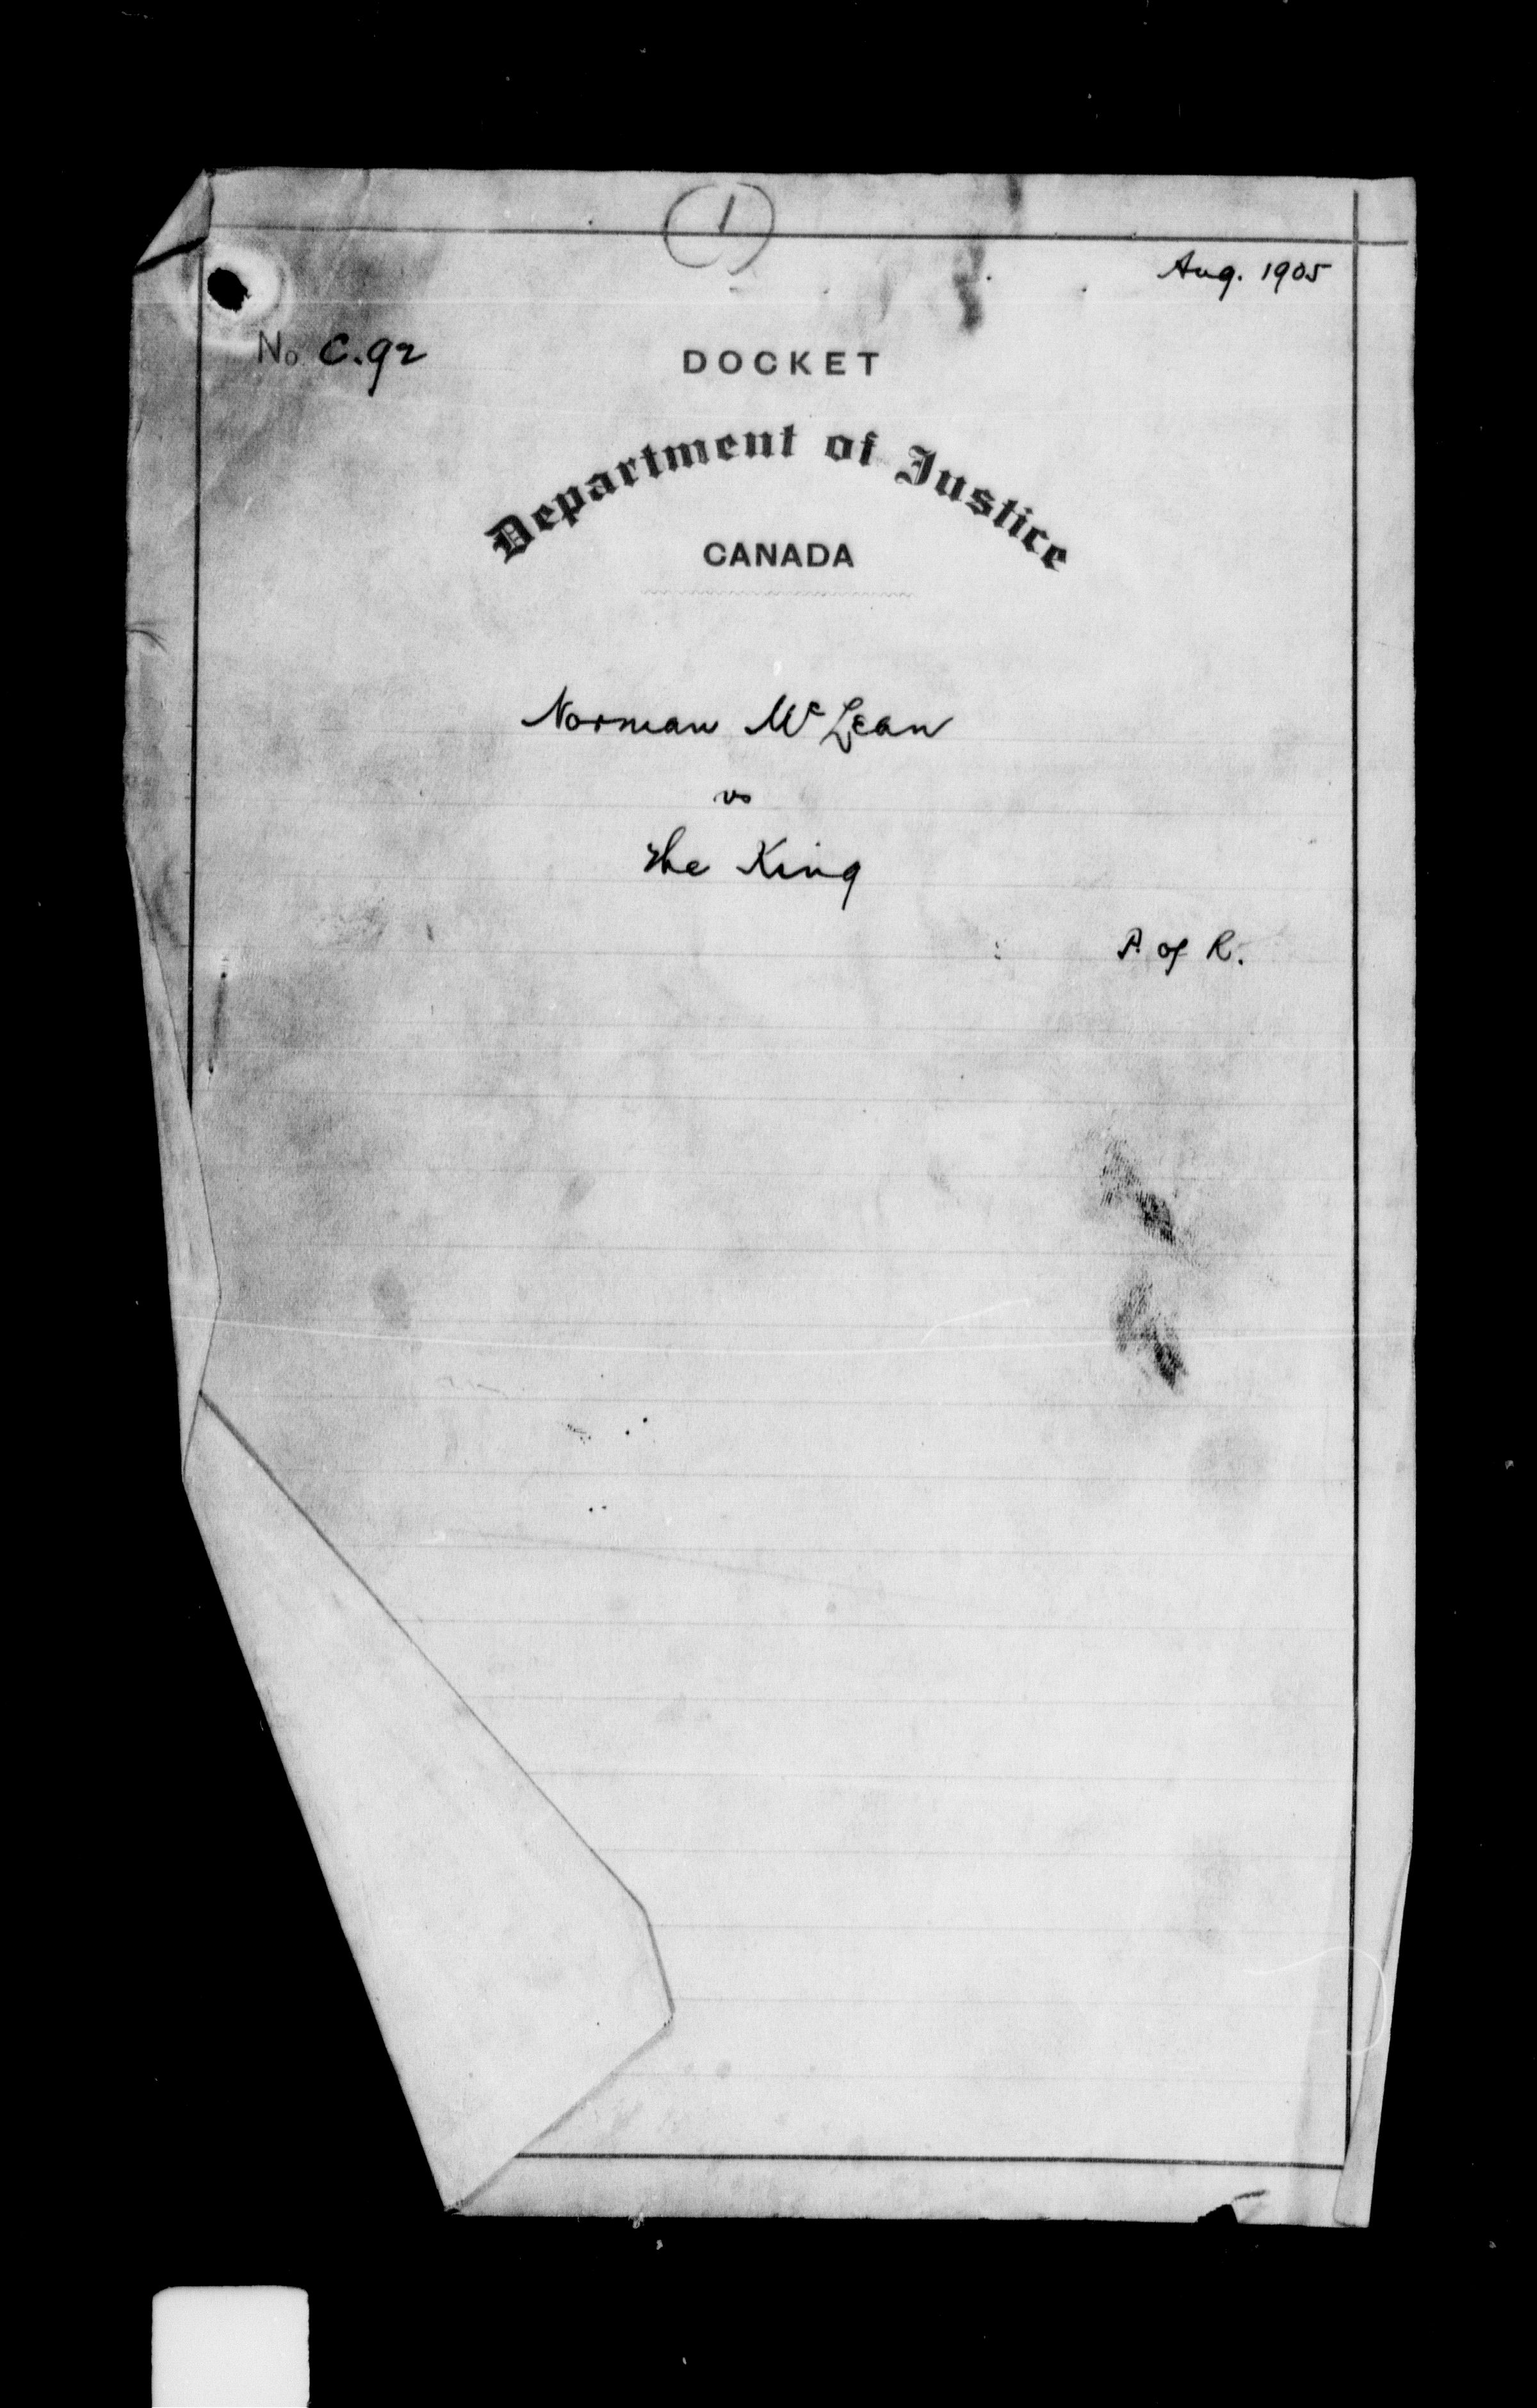 1
Aug. 1905
No. C.92
DOCKET
Department of Justice
CANADA
Norman McLean
vs
The King
P. of R.